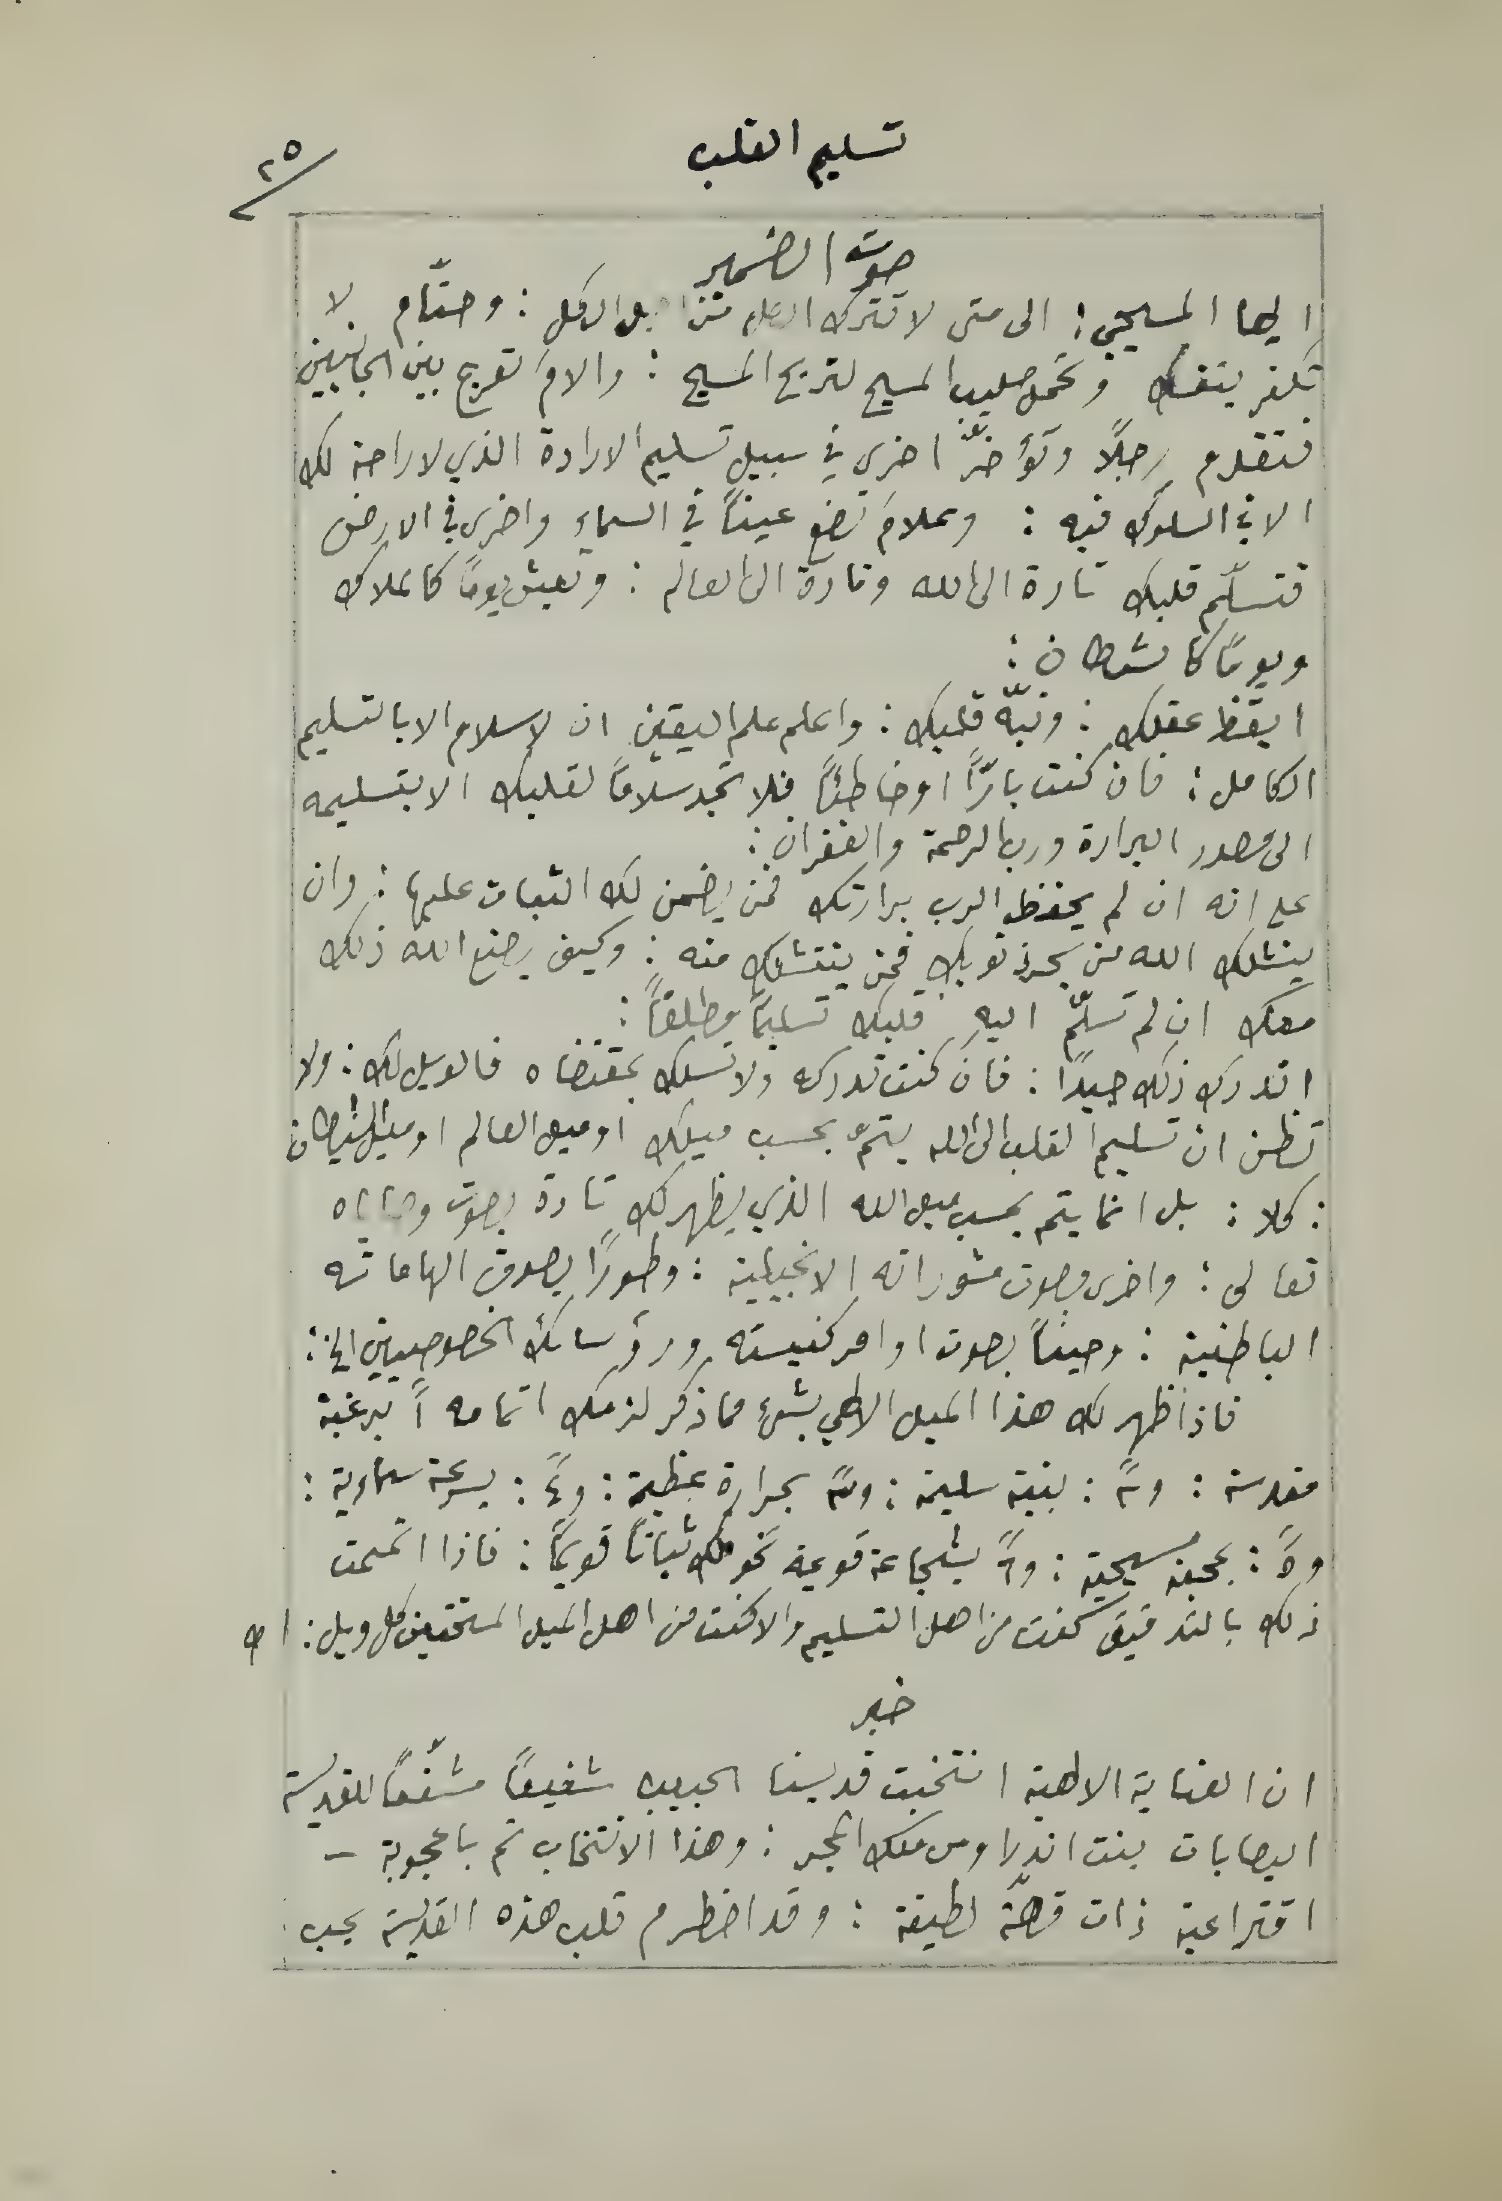 تسليم القلب
٢٥
صوت الضمير
ايها المسيحي: الى متى لا تترك الكل من اجل الكل: وحتّام لا
تكفر بنفسك وتحمل صليب المسيح لتربح المسيح: والامَ تعرج بين الجانبين
فتقدم رجلًا وتؤخرّ اخرى في سبيل تسليم الارادة الذي لا راحة لك
الا في السلوك فيه: وعلامَ تضع عيناً في السماء واخرى في الارض
فتسلّم قلبك تارة الى الله وتارة الى العالم: وتعيش يوماً كالملاك
ويومًا كالشيطان:
ايقّظ عقلك: ونبّه قلبك: واعلم علم اليقين ان لا سلام الا بالتسليم
الكامل: فان كنت بارّاً او خاطئاً فلا تجد سلاماً لقلبك الا بتسليمه
الى مصدر البرارة ورب الرحمة والغفران:
على انه ان لم يحفظ الرب برارتك فمن يضمن لك الثبات عليها: وان
ينشلك الله من بحر ذنوبك فمن ينتشلك منه: وكيف يصنع الله ذلك
معك ان لم تسلّم اليه قلبك تسليمًا مطلقاً:
اتدرك ذلك جيدًا: فان كنت تدركه ولا تسلك بمقتضاه فالويل لك: ولا
تظن ان تسليم القلب الى الله يتمّ بحسب ميلك او ميل العالم او ميل الشيطان
: كلا: بل انما يتم بحسب ميل الله الذي يظهر لك تارة بصوت وصاياه
تعالى: واخرى بصوت مشوراته الانجيلية: وطورًا بصوت الهاماته
الباطنية: وحيناً بصوت اوامر كنيسته ورؤسائك الخصوصيين الخ:
فاذا ظهر لك هذا الميل الالهي بشيءٍ مما ذكر لزمك اتمامه اً برغبة
مقدسة: و٢ً: بنية سليمة: و٣ً بحرارة عظيمة: و٤ً: بسرعة سماوية:
و٥ً: بمحبة مسيحية: و٦ً بشجاعة قوية تخولك ثباتاً قويمًا: فاذا اتممت
ذلك بالتدقيق كنت من اهل التسليم والا كنت من اهل الميل المستحقين كل ويل: اه
خبر
ان العناية الالهية انتخبت قديسنا الحبيب شفيعاً مشفّعاً للقديسة
اليصابات بنت اندراوس ملك المجر: وهذا الانتخاب تم باعجوبة –
اقتراعية ذات قصّة لطيفة: وقد اضطرم قلب هذه القديسة بحب